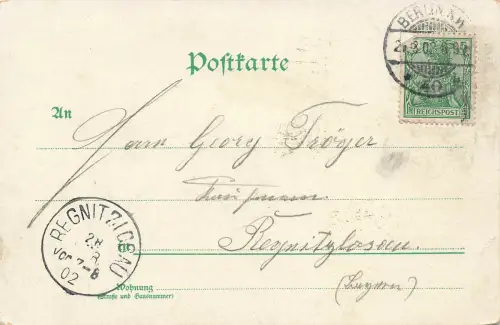 BERLIN.N.W.
Postkarte
REICHSPOST
An
Herrn Georg Tröger
Kaufmann
Regnitzlosau.
(Bayern)
REGNITZLOSAU
VOR. 7-8
02
Wohnung
(Straße und Hausnummer)